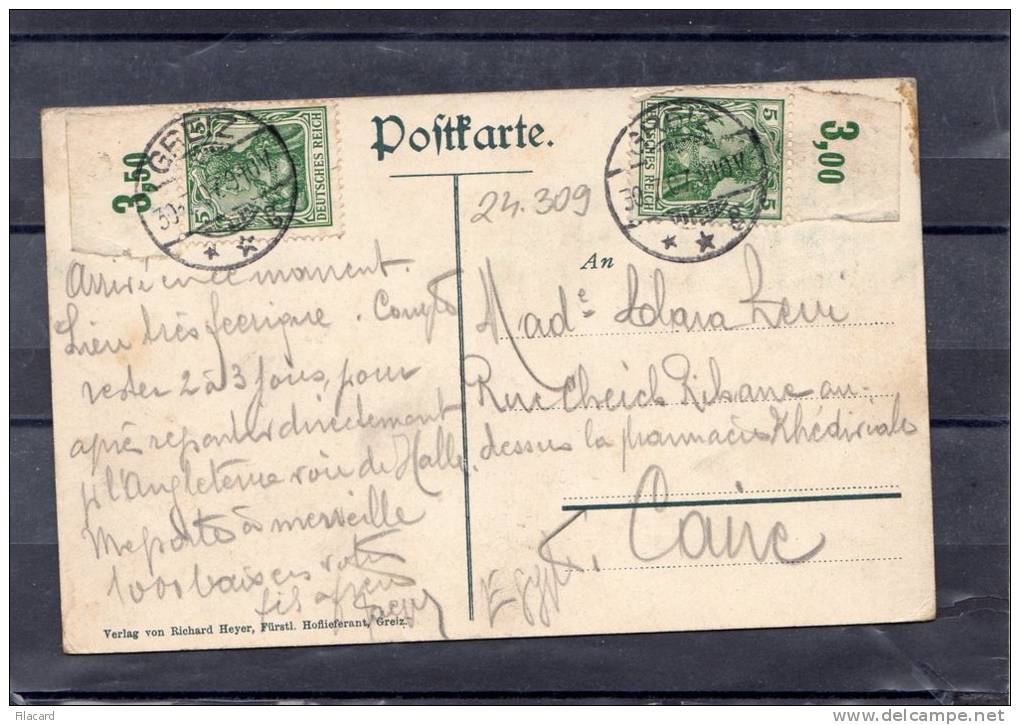 Postkarte.
3,50
GREIZ
5 5
DEUTSCHES REICH
3,00
GREIZ
5 5
DEUTSCHES REICH
24.309
An
Arrivé en ce moment.
Lieu très feerique. Compte
rester 2 à 3 jours, pour
après repartir directement
p l'Angleterre voie de Halle.
Me porte à merveille
1000 baisers votre
fils
Made Clara
Rue Cheich au-
dessus la pharmacie Khédiviale
Caire
Egypt.
Verlag von Richard Heyer, Fürstl. Hoflieferant, Greiz.
Filacard
www.delcampe.net